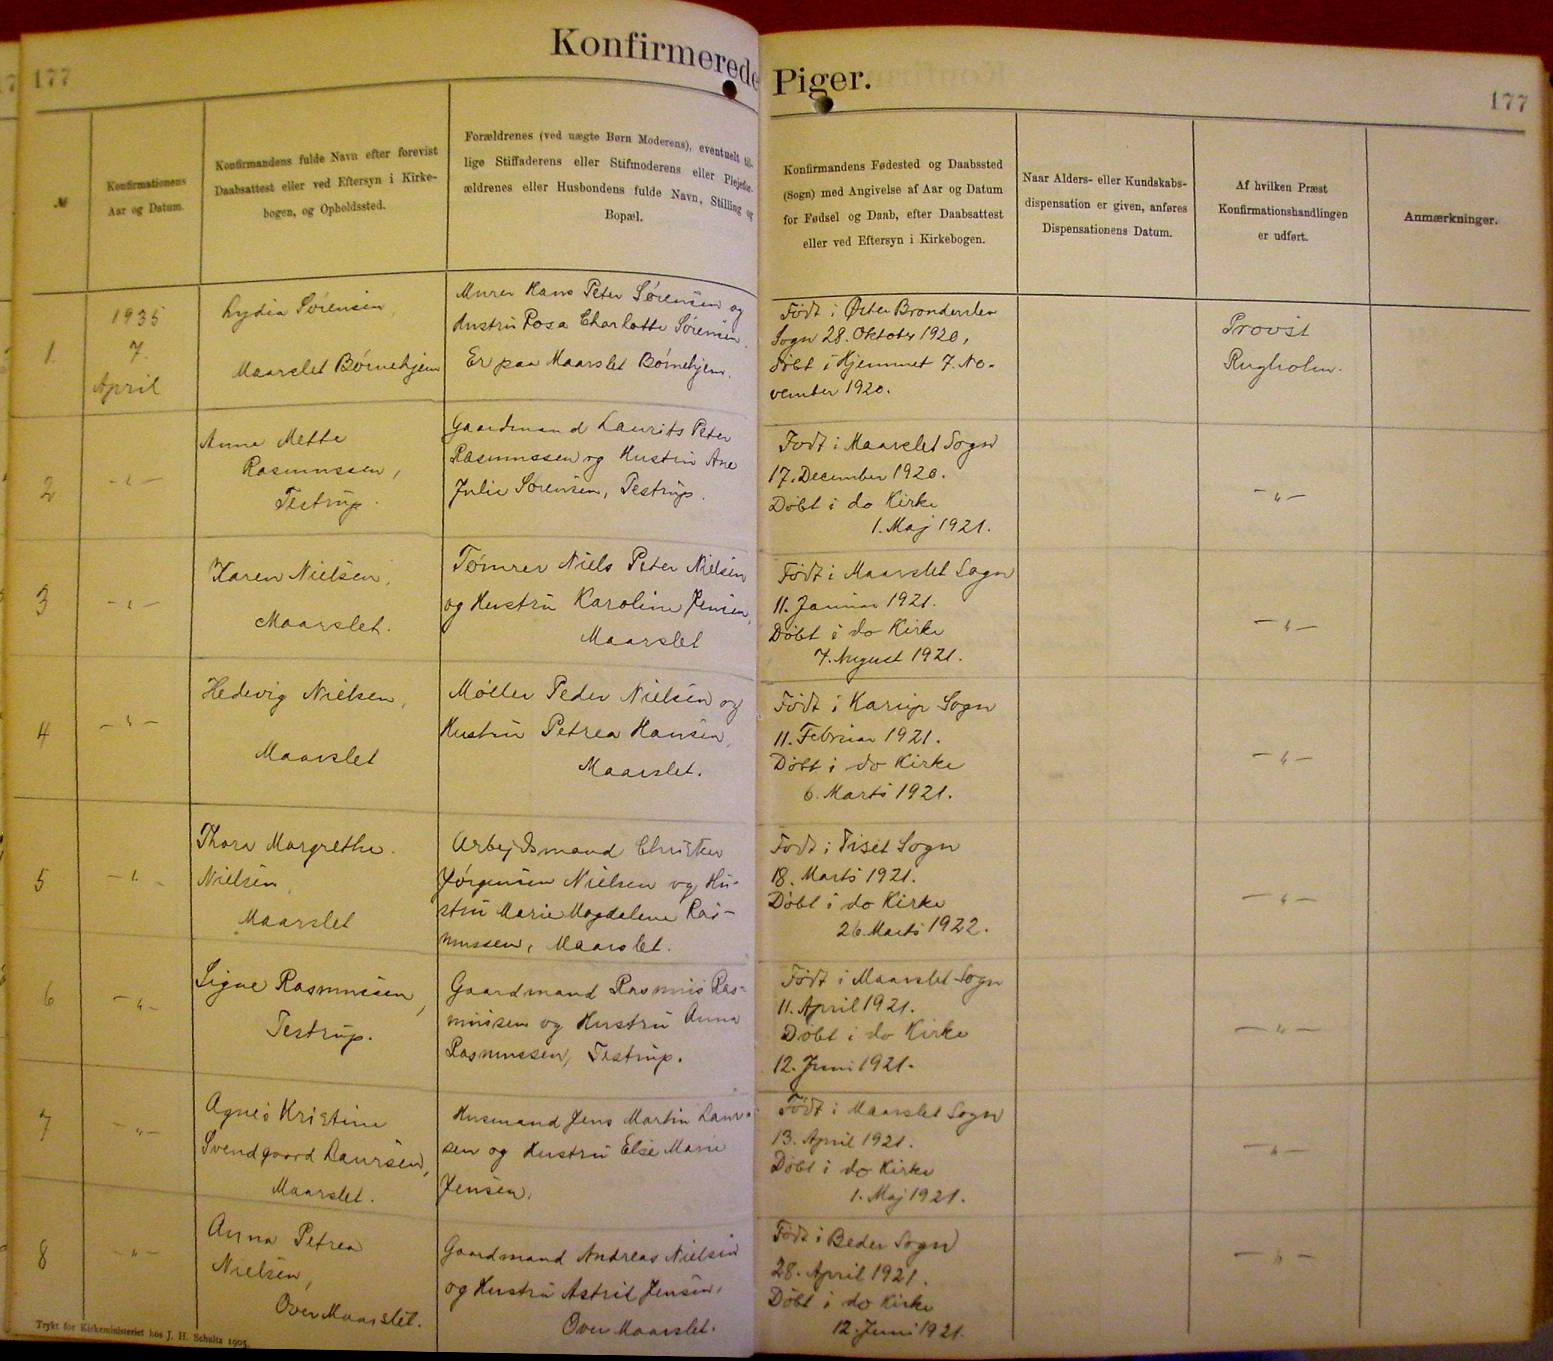 177
Konfirmerede Piger.
177
№
Konfirmationens
Aar og Datum.
Konfirmandens fulde Navn efter forevist
Daabsattest eller ved Eftersyn i Kirke-
bogen, og Opholdssted.
Forældrenes (ved uægte Børn Moderens), eventuelt til-
lige Stiffaderens eller Stifmoderens eller Plejefor-
ældrenes eller Husbondens fulde Navn, Stilling og
Bopæl.
Konfirmandens Fødested og Daabssted
(Sogn) med Angivelse af Aar og Datum
for Fødsel og Daab, efter Daabsattest
eller ved Eftersyn i Kirkebogen.
Naar Alders- eller Kundskabs-
dispensation er given, anføres
Dispensationens Datum.
Af hvilken Præst
Konfirmationshandlingen
er udført.
Anmærkninger.
1.
1935
7.
April
Lydia Sørensen,
Maarslet Børnehjem
Murer Hans Peter Sørensen og
Hustru Rosa Charlotte Sørensen.
Er paa Maarslet Børnehjem.
Født i Øster Brønderslev
Sogn 28. Oktober 1920,
døbt i Hjemmet 7. No-
vember 1920.
Provst
Rugholm.
2
- " -
Anna Mette
Rasmussen,
Testrup.
Gaardmand Laurits Peter
Rasmussen og Hustru Ane
Julie Sørensen, Testrup.
Født i Maarslet Sogn
17. December 1920.
Døbt i do Kirke
1. Maj 1921.
- " -
3
- " -
Karen Nielsen,
Maarslet.
Tømrer Niels Peter Nielsen
og Hustru Karoline Jensen,
Maarslet
Født i Maarslet Sogn
11. Januar 1921.
Døbt i do Kirke
7. August 1921.
- " -
4
- " -
Hedevig Nielsen,
Maarslet
Møller Peder Nielsen og
Hustru Petrea Hansen,
Maarslet.
Født i Karup Sogn
11. Februar 1921.
Døbt i do Kirke
6. Marts 1921.
- " -
5
- " -
Thora Margrethe
Nielsen,
Maarslet
Arbejdsmand Christen
Jørgensen Nielsen og Hu-
stru Marie Magdalene Ras-
mussen, Maarslet.
Født i Tiset Sogn
18. Marts 1921.
Døbt i do Kirke
26. Marts 1922.
- " -
6
- " -
Signe Rasmussen,
Testrup.
Gaardmand Rasmus Ras-
mussen og Hustru Anna
Rasmussen, Testrup.
Født i Maarslet Sogn
11. April 1921.
Døbt i do Kirke
12. Juni 1921.
- " -
7
- " -
Agnes Kristine
Svendgaard Laursen,
Maarslet.
Husmand Jens Martin Laur-
sen og Hustru Else Marie
Jensen.
Født i Maarslet Sogn
13. April 1921.
Døbt i do Kirke
1. Maj 1921.
- " -
8
- " -
Anna Petrea
Nielsen,
Over Maarslet.
Gaardmand Andreas Nielsen
og Hustru Astrid Jensen,
Over Maarslet.
Født i Beder Sogn
28. April 1921.
Døbt i do Kirke
12. Juni 1921.
- " -
Trykt for Kirkeministeriet hos J. H. Schultz 1905.